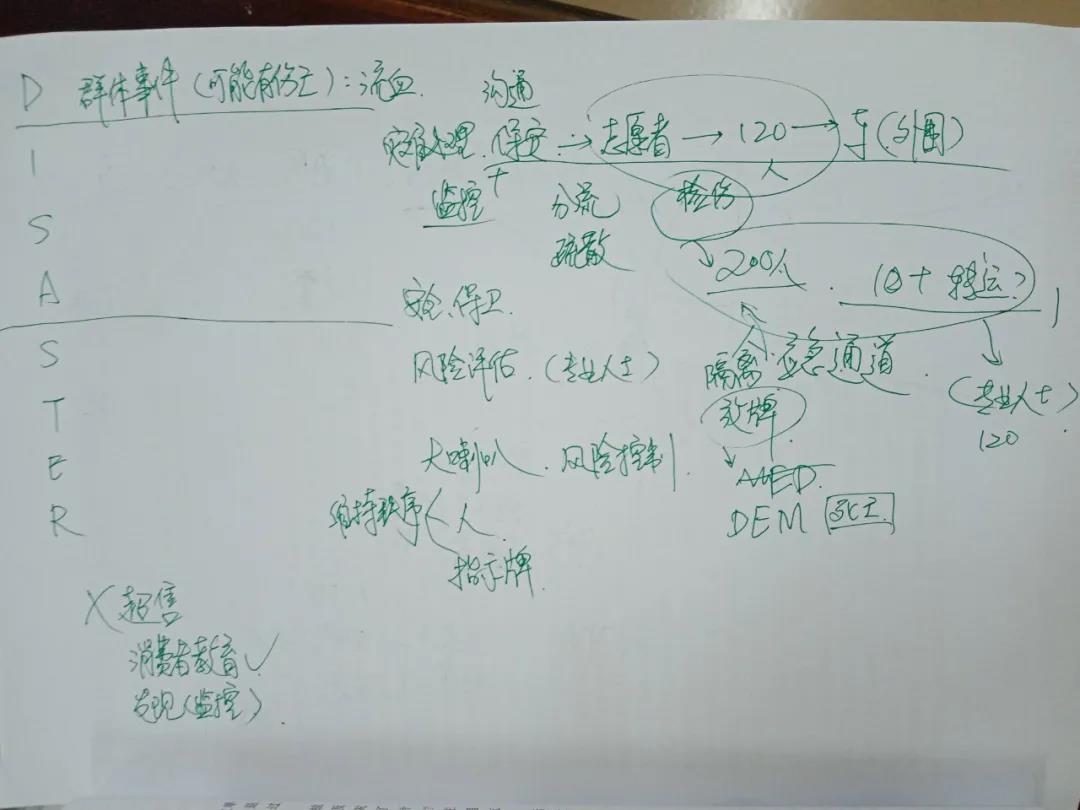 D 群体事件(可能有伤亡):流血.
沟通
灾难处理.保安.→志愿者→120→车(外围)
人
I
监控+
分流
检伤
S
疏散
200人.(10+转运?)
A
安全.保卫.
S
风险评估.(专业人士)
隔离 应急通道.
(专业人士)
120
T
牌
E
大喇叭.风险控制.
MED.
R
维持秩序<人.
DEM 死亡
指示牌.
X 超售
消费者教育✓
发现(监控)